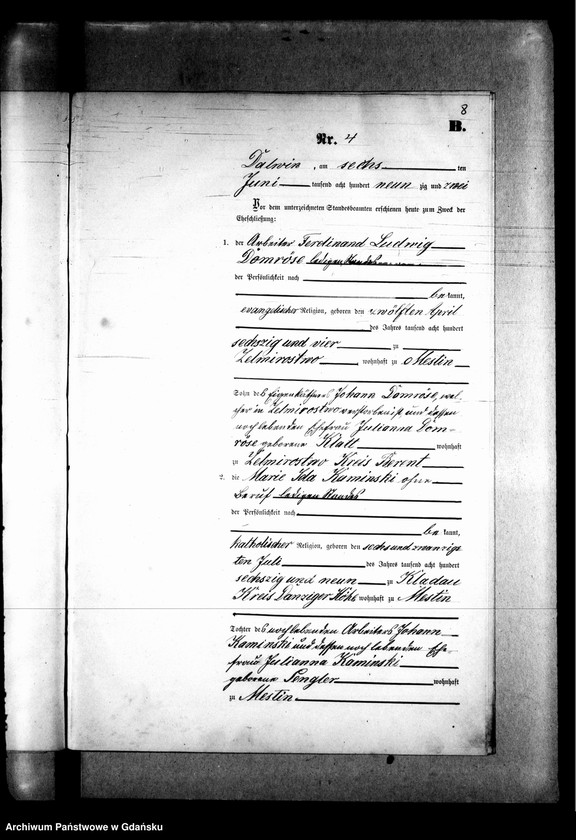 8
B.
Nr. 4
Dalwin, am sechs ten
Juni tausend acht hundert neun zig und zwei
Vor dem unterzeichneten Standesbeamten erschienen heute zum Zweck der
Eheschließung:
1. der Arbeiter Ferdinand Ludwig
Domröse ledigen Standes
der Persönlichkeit nach
be kannt,
evangelischer Religion, geboren den zwölften April
des Jahres tausend acht hundert
sechszig und vier zu
Zelmirostwo, wohnhaft zu Mestin
Sohn des Eigenkäthners Johann Domröse, wel-
cher in Zelmirostwo verstorben ist und dessen
noch lebenden Ehefrau Julianna Dom-
röse geborene Klatt wohnhaft
zu Zelmirostwo Kreis Berent
2. die Marie Ida Kaminski ohne
Beruf ledigen Standes
der Persönlichkeit nach
be kannt,
katholischer Religion, geboren den sechsundzwanzigs-
ten Juli des Jahres tausend acht hundert
sechszig und neun zu Kladau
Kreis Danziger Höhe wohnhaft zu Mestin
Tochter des noch lebenden Arbeiters Johann
Kaminski und dessen noch lebenden Ehe-
frau Julianna Kaminski
geborene Pengler wohnhaft
zu Mestin
Archiwum Państwowe w Gdańsku